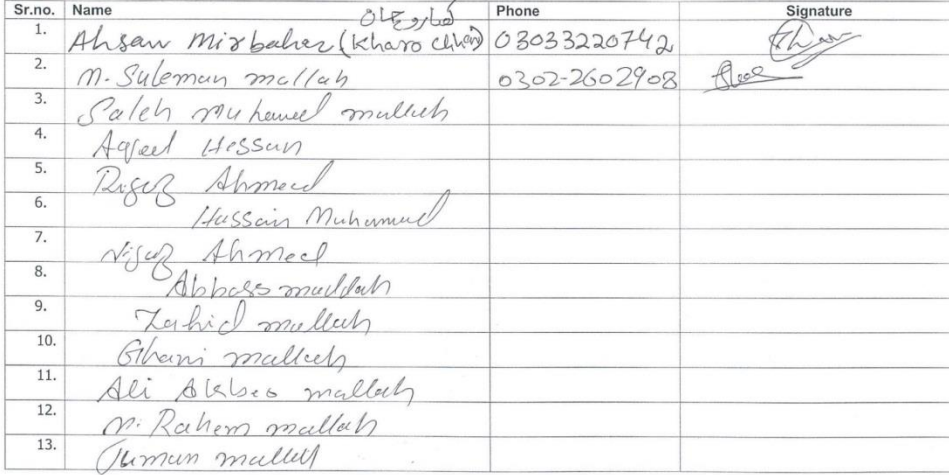 Sr.no. Name Phone Signature
کھارو چھان
1. Ahsan Mirbaher (Kharo Chhan) 03033220742
2. M. Suleman mallah 0302-2602908
3. Saleh Muhamed mallah
4. Aqeel Hessan
5. Ahmed
6. Hussain Muhammed
7. Ahmed
8. Abbass mallah
9. Zahid mallah
10. Ghani mallah
11. Ali Akber mallah
12. M. Rahem mallah
13. Juman mallah